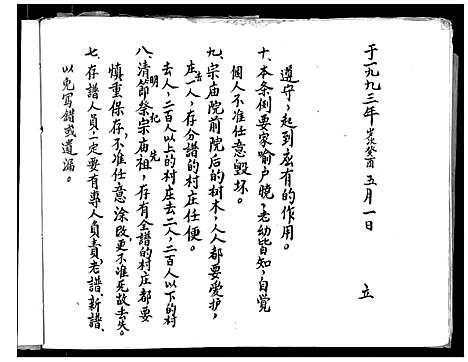 以免写錯或遺漏。
七、存譜人員,一定要有專人負責,老譜、新譜、
慎重保存,不准任意涂改,更不准死故丢失。
八、清明節祭北宗庙祖先,存有全譜的村庄都要
去人,二百人以上的村庄去二人,二百人以下的村
庄去一人,存分譜的村庄任便。
九、宗庙院前院后的树木,人人都要爱护,
個人不准任意毁坏。
十、本条例要家喻户晓,老幼皆知,自觉
遵守,起到应有的作用。
于一九九三年 岁次癸酉 五月一日 立